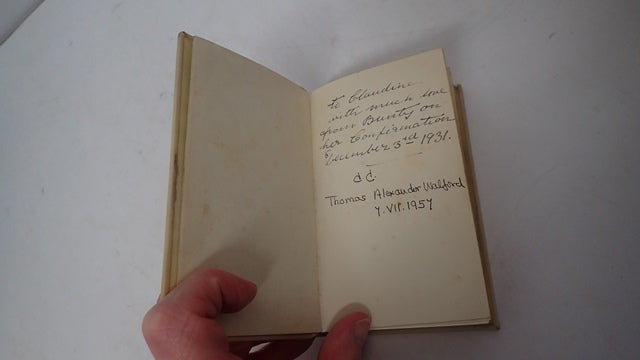 to Claudine
with much love
from Bunty on
her Confirmation
December 3rd 1931.
d d.
Thomas Alexander Walford
7.VII.1957